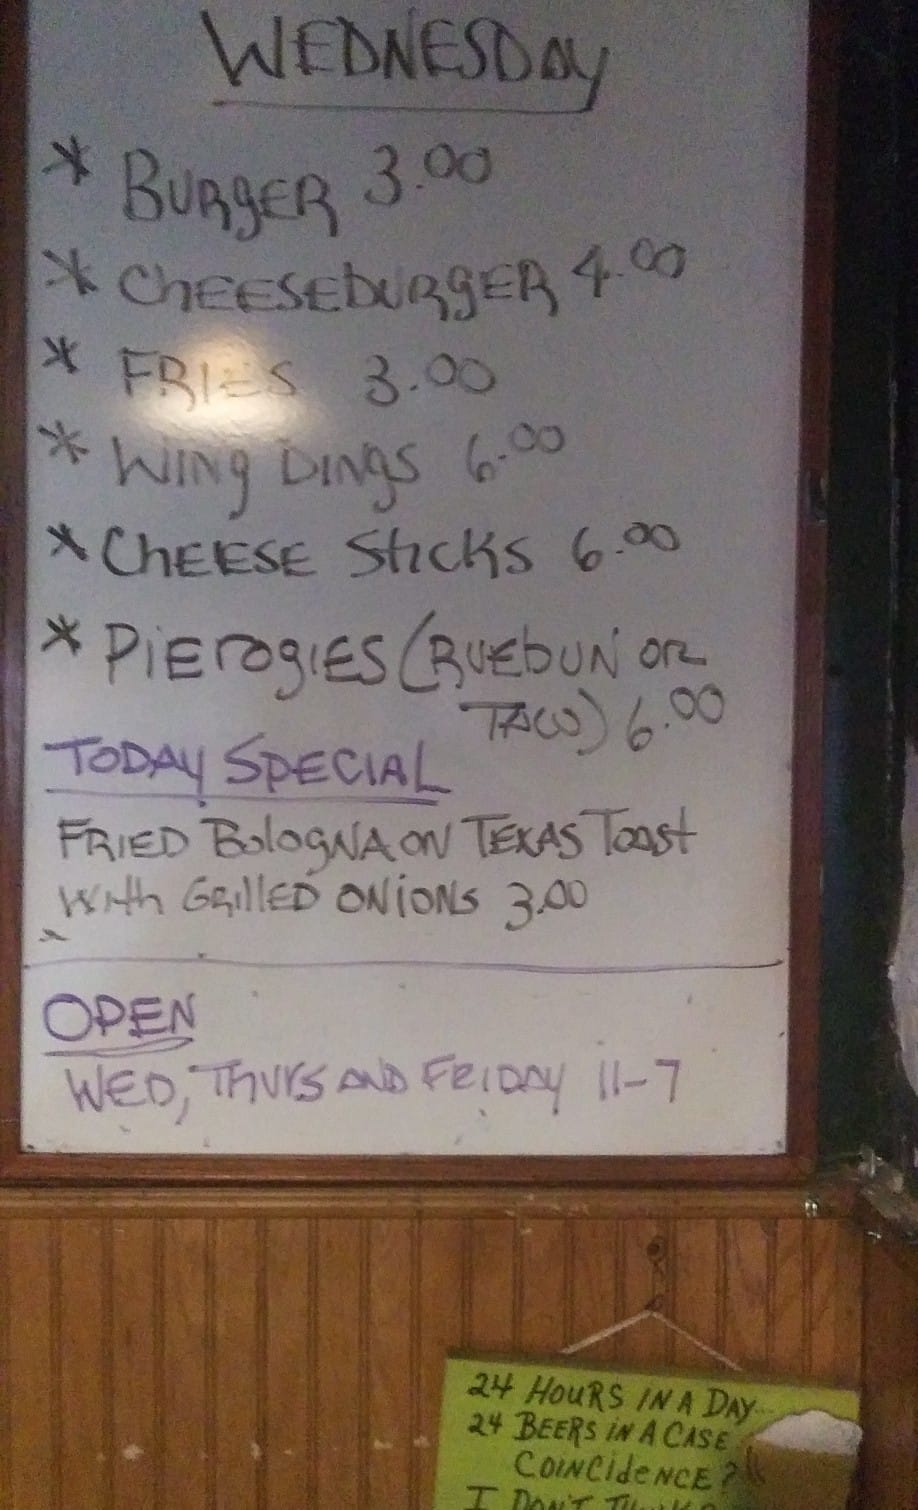 WEDNESDAY
* BURGER 3.00
* CHEESEBURGER 4.00
* FRIES 3.00
* WING DINGS 6.00
* CHEESE STICKS 6.00
* PIEROGIES (RUEBUN OR
TACO) 6.00
TODAY SPECIAL
FRIED BOLOGNA ON TEXAS TOAST
WITH GRILLED ONIONS 3.00
OPEN
WED, THURS AND FRIDAY 11-7
24 HOURS IN A DAY...
24 BEERS IN A CASE
COINCIDENCE?
I DON'T